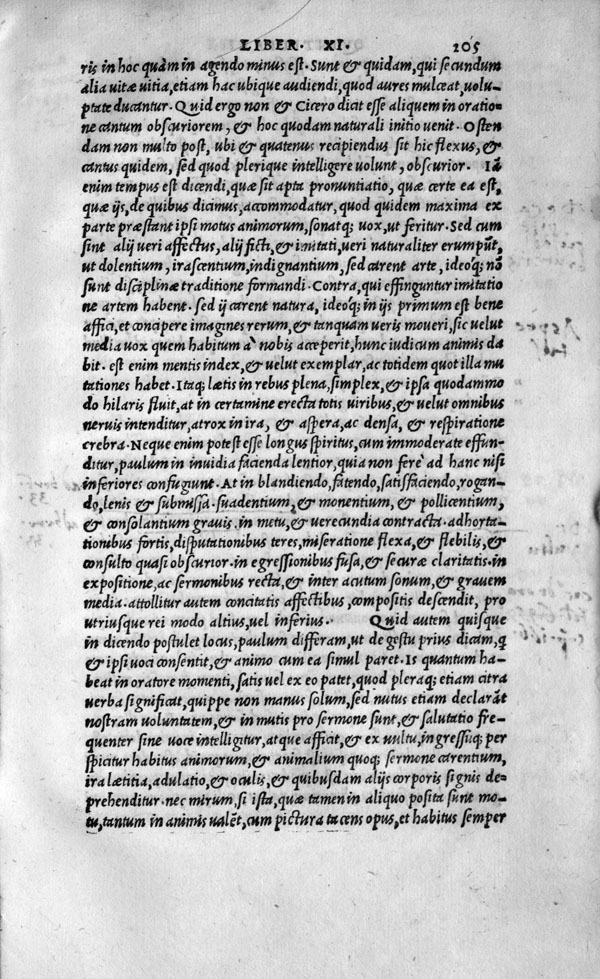 LIBER· XI· 205
ris in hoc quàm in agendo minus est· Sunt & quidam, qui secundum
alia vitæ vitia, etiam hac ubique audiendi, quod aures mulceat, volu-
ptate ducantur· Quid ergo non & Cicero dicat esse aliquem in oratio-
ne cantum obscuriorem, & hoc quodam naturali initio venit· Osten
dam non multo post, ubi & quatenus recipiendus sit hic flexus, &
cantus quidem, sed quod plerique intelligere volunt, obscurior· Iã
enim tempus est dicendi, quæ sit apta pronuntiatio, quæ certe ea est,
quæ ijs, de quibus dicimus, accommodatur, quod quidem maxima ex
parte præstant ipsi motus animorum, sonatq; vox, ut feritur· Sed cum
sint alij veri affectus, alij ficti, & imitati, veri naturaliter erumpũt,
ut dolentium, irascentium, indignantium, sed carent arte, ideoq; nõ
sunt disciplinæ traditione formandi· Contra, qui effinguntur imitatio
ne artem habent· sed ij carent natura, ideoq; in ijs primum est bene
affici, et concipere imagines rerum, & tanquam veris moveri, sic velut
media vox quem habitum à nobis acceperit, hunc iudicum animis da
bit· est enim mentis index, & velut exemplar, ac totidem quot illa mu
tationes habet· Itaq; lætis in rebus plena, simplex, & ipsa quodammo
do hilaris fluit, at in certamine erecta totis viribus, & velut omnibus
nervis intenditur, atrox in ira, & aspera, ac densa, & respiratione
crebra· Neque enim potest esse longus spiritus, cum immoderate effun-
ditur, paulum in invidia facienda lentior, quia non ferè ad hanc nisi
inferiores confugiunt· At in blandiendo, fatendo, satisfaciendo, rogan-
do, lenis & submissa· suadentium, & monentium, & pollicentium,
& consolantium gravis· in metu, & verecundia contracta· adhorta-
tionibus fortis, disputationibus teres, miseratione flexa, & flebilis, &
consulto quasi obscurior· in egressionibus fusa, & securæ claritatis· in
expositione, ac sermonibus recta, & inter acutum sonum, & gravem
media· attollitur autem concitatis affectibus, compositis descendit, pro
utriusque rei modo altius, vel inferius· Quid autem quisque
in dicendo postulet locus, paulum differam, ut de gestu prius dicam, q
& ipsi voci consentit, & animo cum ea simul paret· Is quantum ha-
beat in oratore momenti, satis vel ex eo patet, quod pleraq; etiam citra
verba significat, quippe non manus solum, sed nutus etiam declarãt
nostram voluntatem, & in mutis pro sermone sunt, & salutatio fre-
quenter sine voce intelligitur, atque afficit, & ex vultu, ingressuq; per
spicitur habitus animorum, & animalium quoq; sermone carentium,
ira lætitia, adulatio, & oculis, & quibusdam alijs corporis signis de-
prehenditur· nec mirum, si ista, quæ tamen in aliquo posita sunt mo-
tu, tantum in animis valẽt, cum pictura tacens opus, et habitus semper